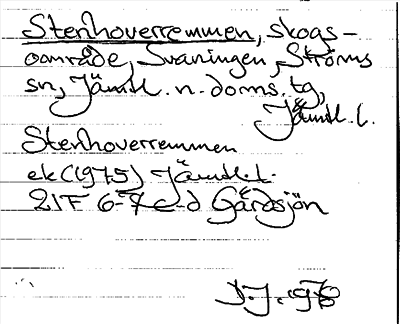 Stenhoverremmen, skogs-
område, Svaningen, Ströms
sn, Jämtl. n. doms. tg,
Jämtl. l.
Stenhoverremmen
ek (1975) Jämtl. l.
21F 6-7 c-d Gårdsjön
J. 1976